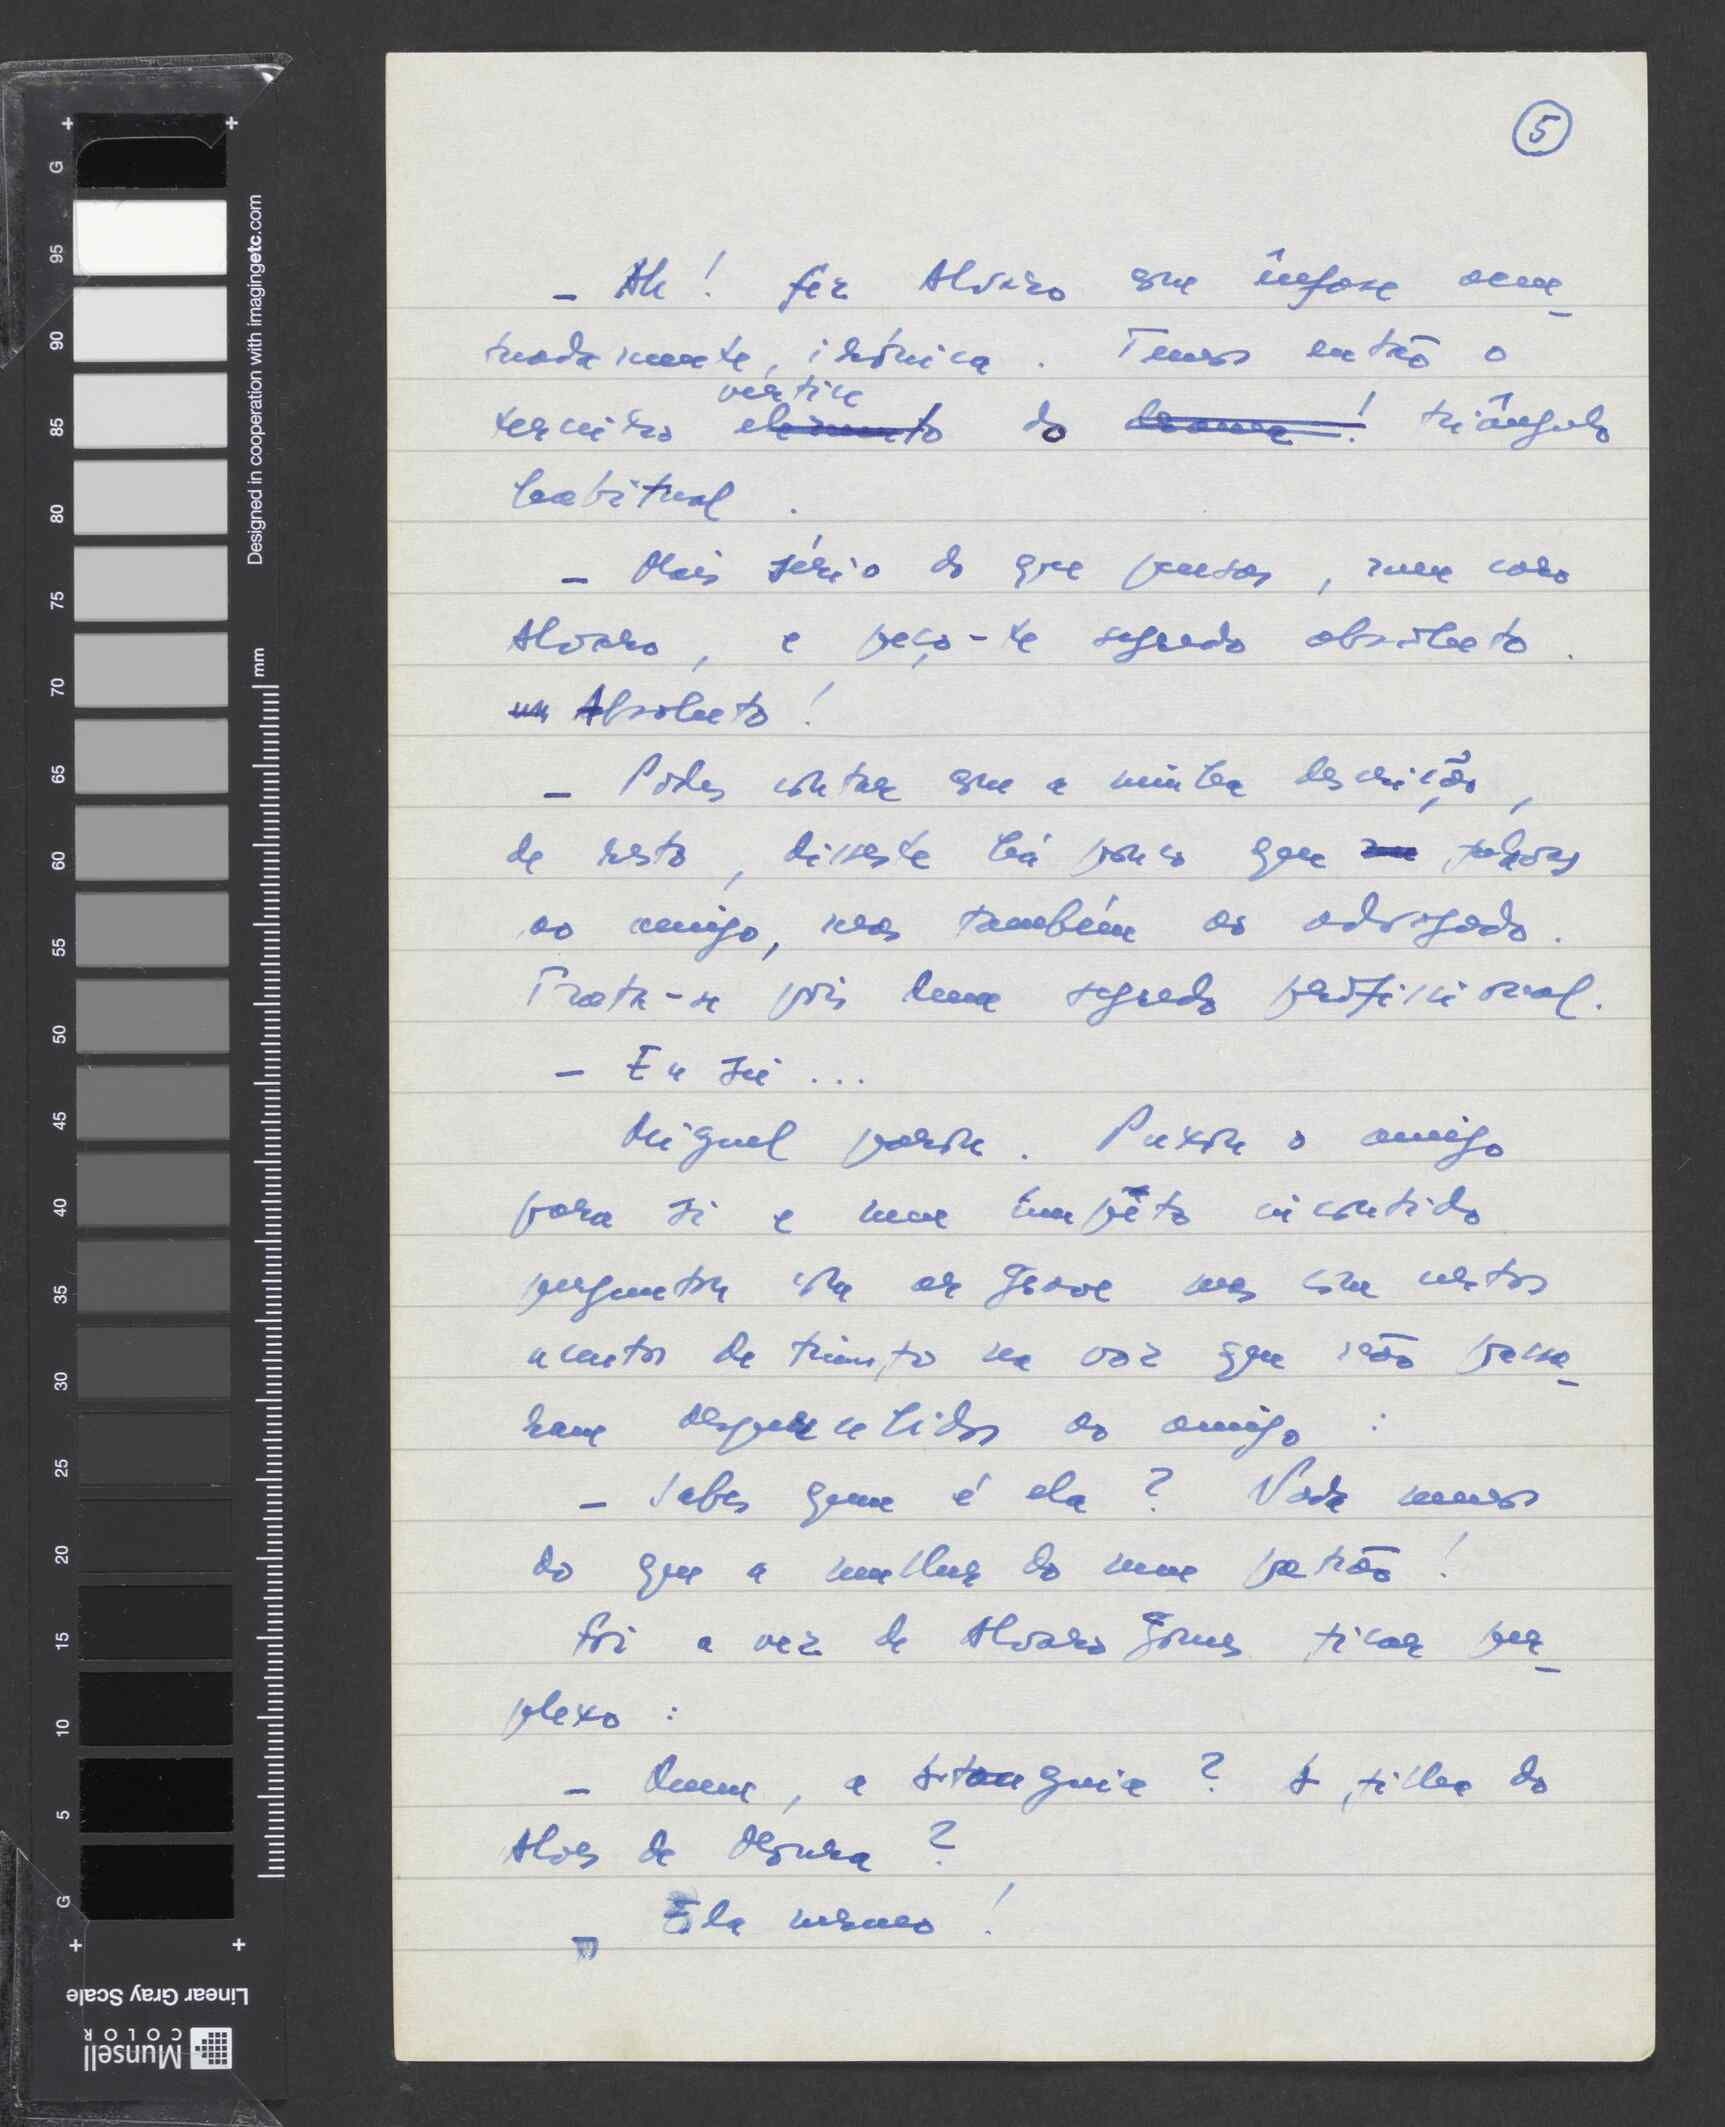 5
– Ah! fez Alvaro com ênfase acen-
tuadamente, irónica. Temos então o
vértice
terceiro elemento do drama! triângulo
habitual.
– Mais sério do que pensas, meu caro
Alvaro, e peço-te segredo absoluto.
Absoluto!
– Podes contar com a minha descrição,
de resto, disseste há pouco que falavas
ao amigo, mas também ao advogado.
Trata-se pois dum segredo profissional.
– Eu sei...
Miguel parou. Puxou o amigo
para si e num ímpeto incontido
perguntou com ar grave mas com certos
acentos de triunfo na voz que não passa-
ram despercebidos ao amigo:
– Sabes quem é ela? Nada menos
do que a mulher do meu patrão!
Foi a vez de Alvaro Gomes ficar per-
plexo:
– Quem, a ? A filha do
Alves de Moura?
– Ela mesmo!
G
95
90
85
80
75
70
65
60
55
50
45
40
35
30
25
20
15
10
5
G
mm
Designed in cooperation with imagingetc.com
Linear Gray Scale
Munsell
COLOR